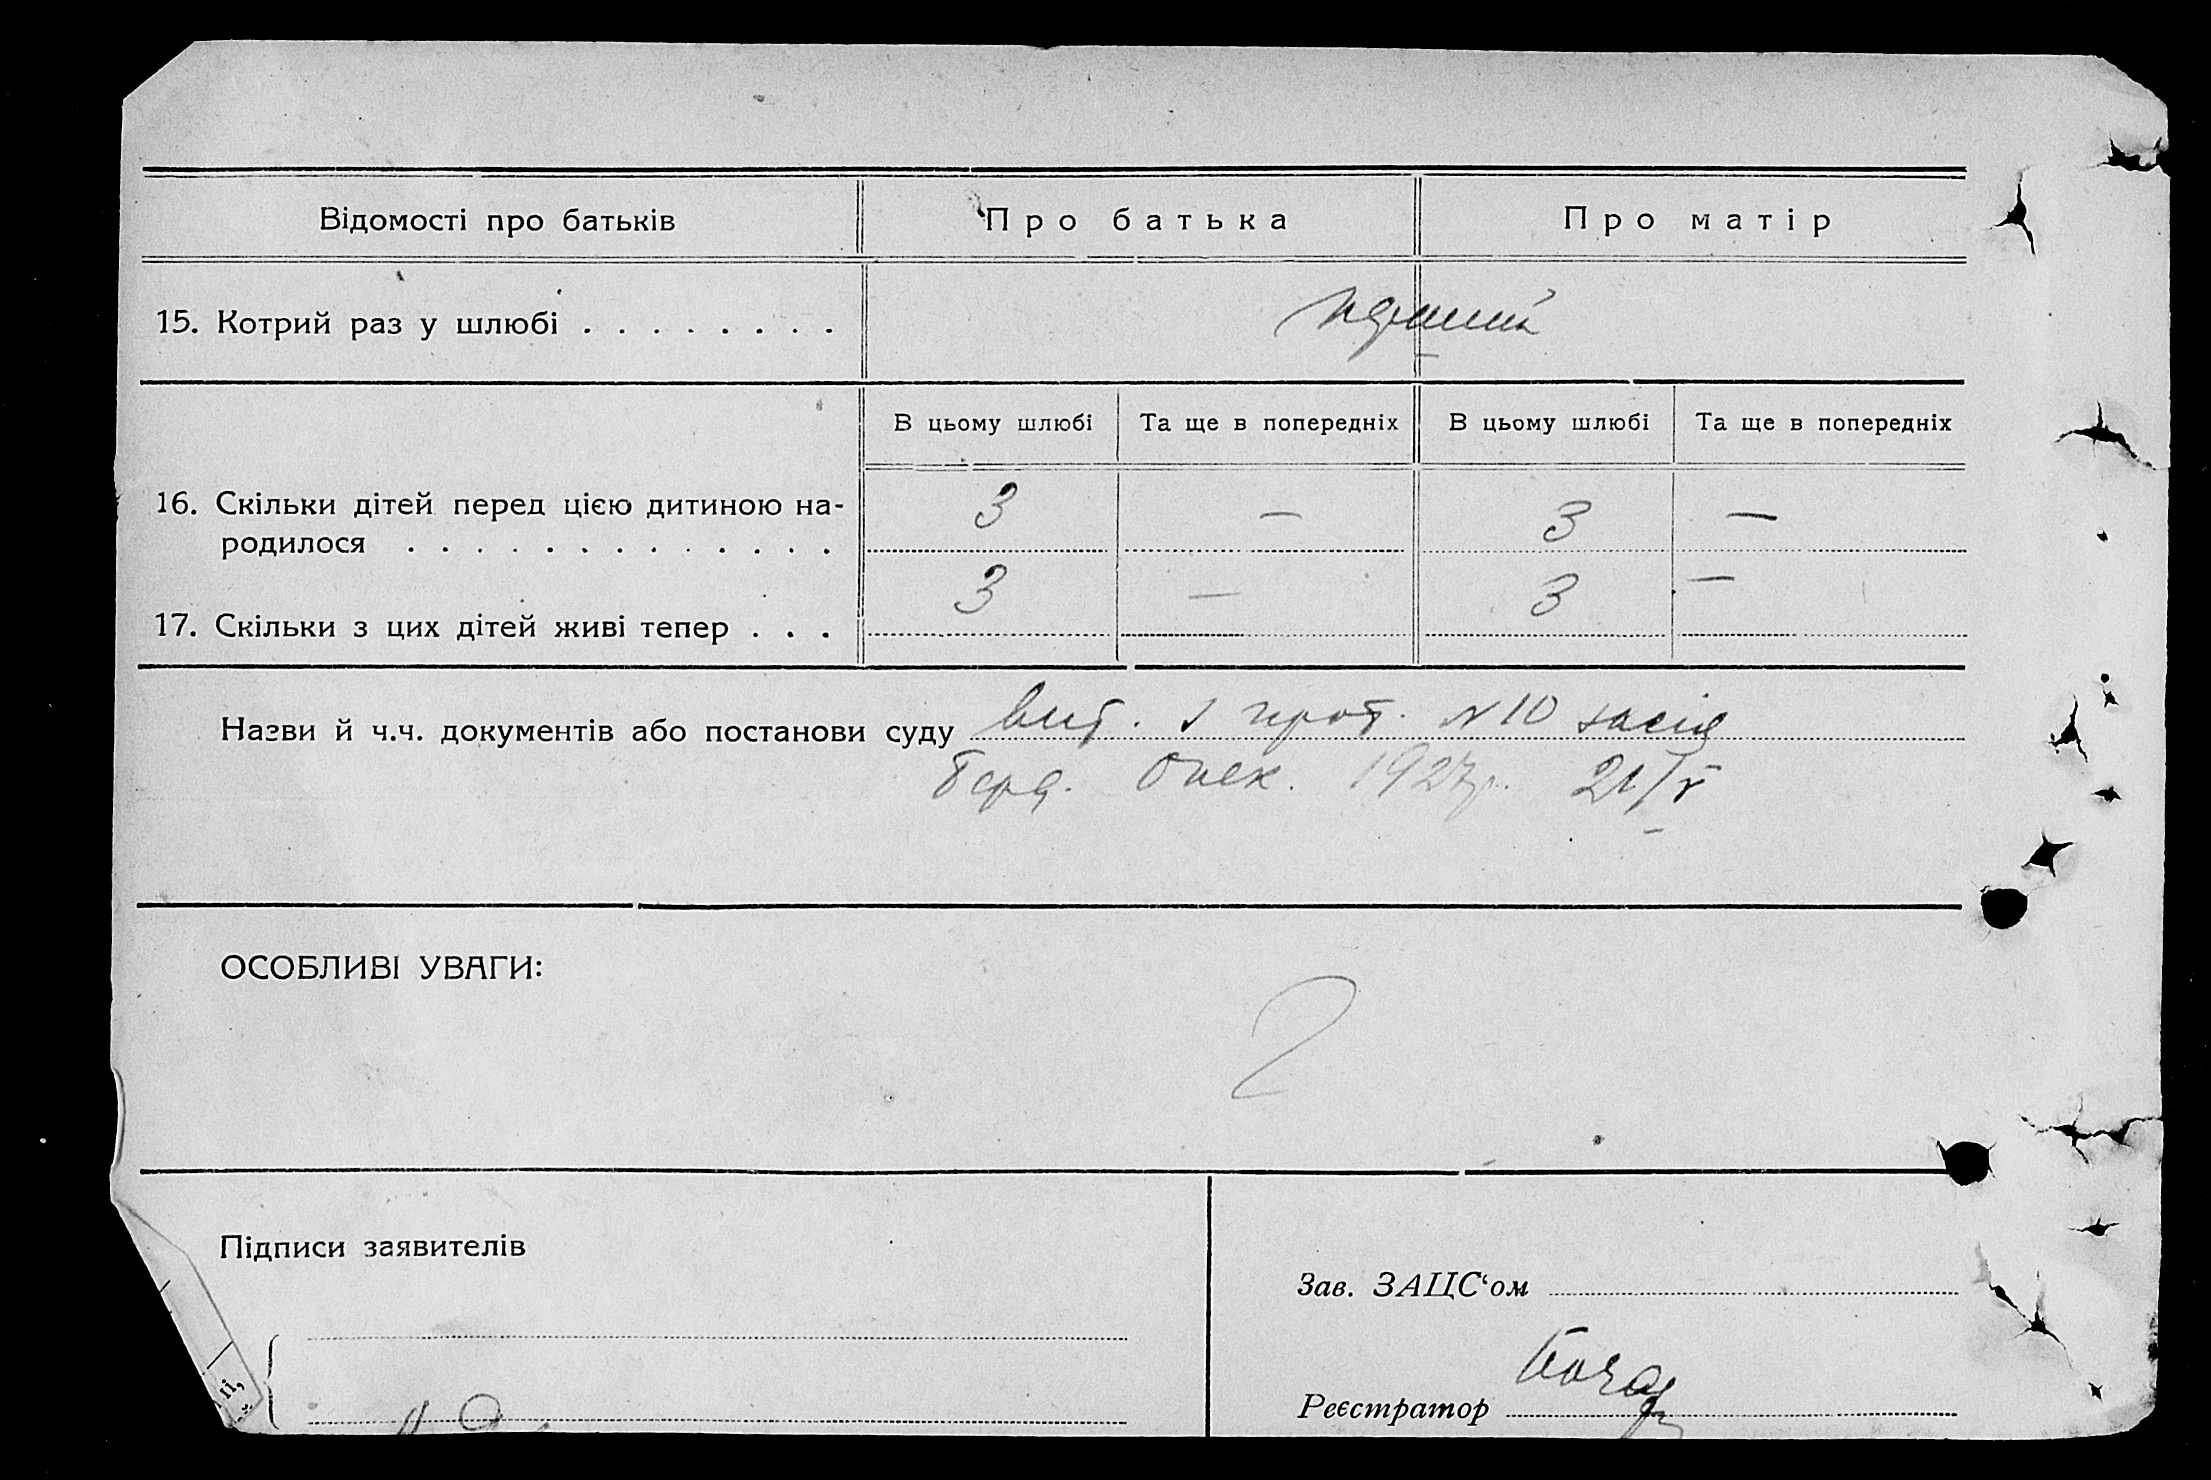 Відомості про батьків
Про батька
Про матір
15. Котрий раз у шлюбі . . . . . . . .
перший
В цьому шлюбі
Та ще в попередніх
В цьому шлюбі
Та ще в попередніх
16. Скільки дітей перед цією дитиною на-
родилося . . . . . . . . . . . . .
3 — 3 —
17. Скільки з цих дітей живі тепер . . .
3 — 3 —
Назви й ч.ч. документів або постанови суду вит. з прот. №10 засід
Берд. Опек. 1927р. 21/V
ОСОБЛИВІ УВАГИ:
2
Підписи заявителів
Зав. ЗАЦС‘ом
Реєстратор